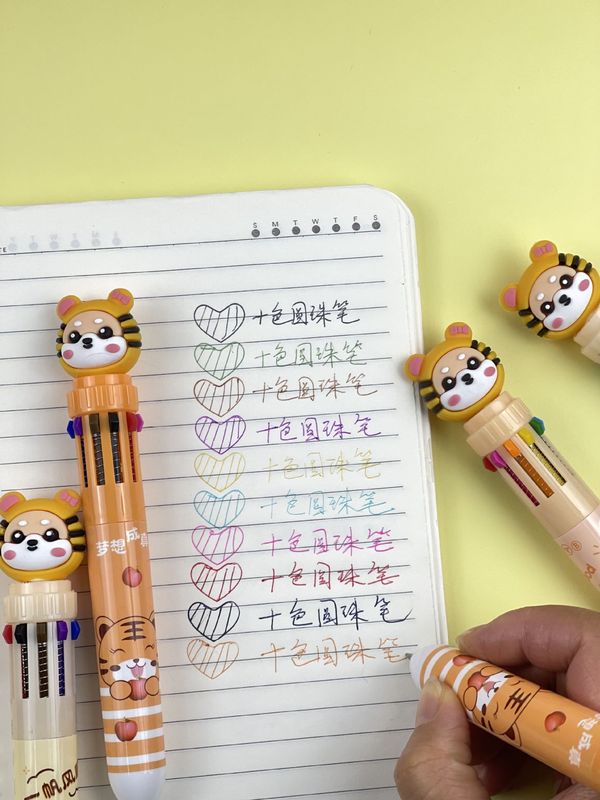 S M T W T F S
十色圆珠笔
十色圆珠笔
十色圆珠笔
十色圆珠笔
十色圆珠笔
十色圆珠笔
十色圆珠笔
十色圆珠笔
十色圆珠笔
十色圆珠笔
梦想成真
一帆风
成真